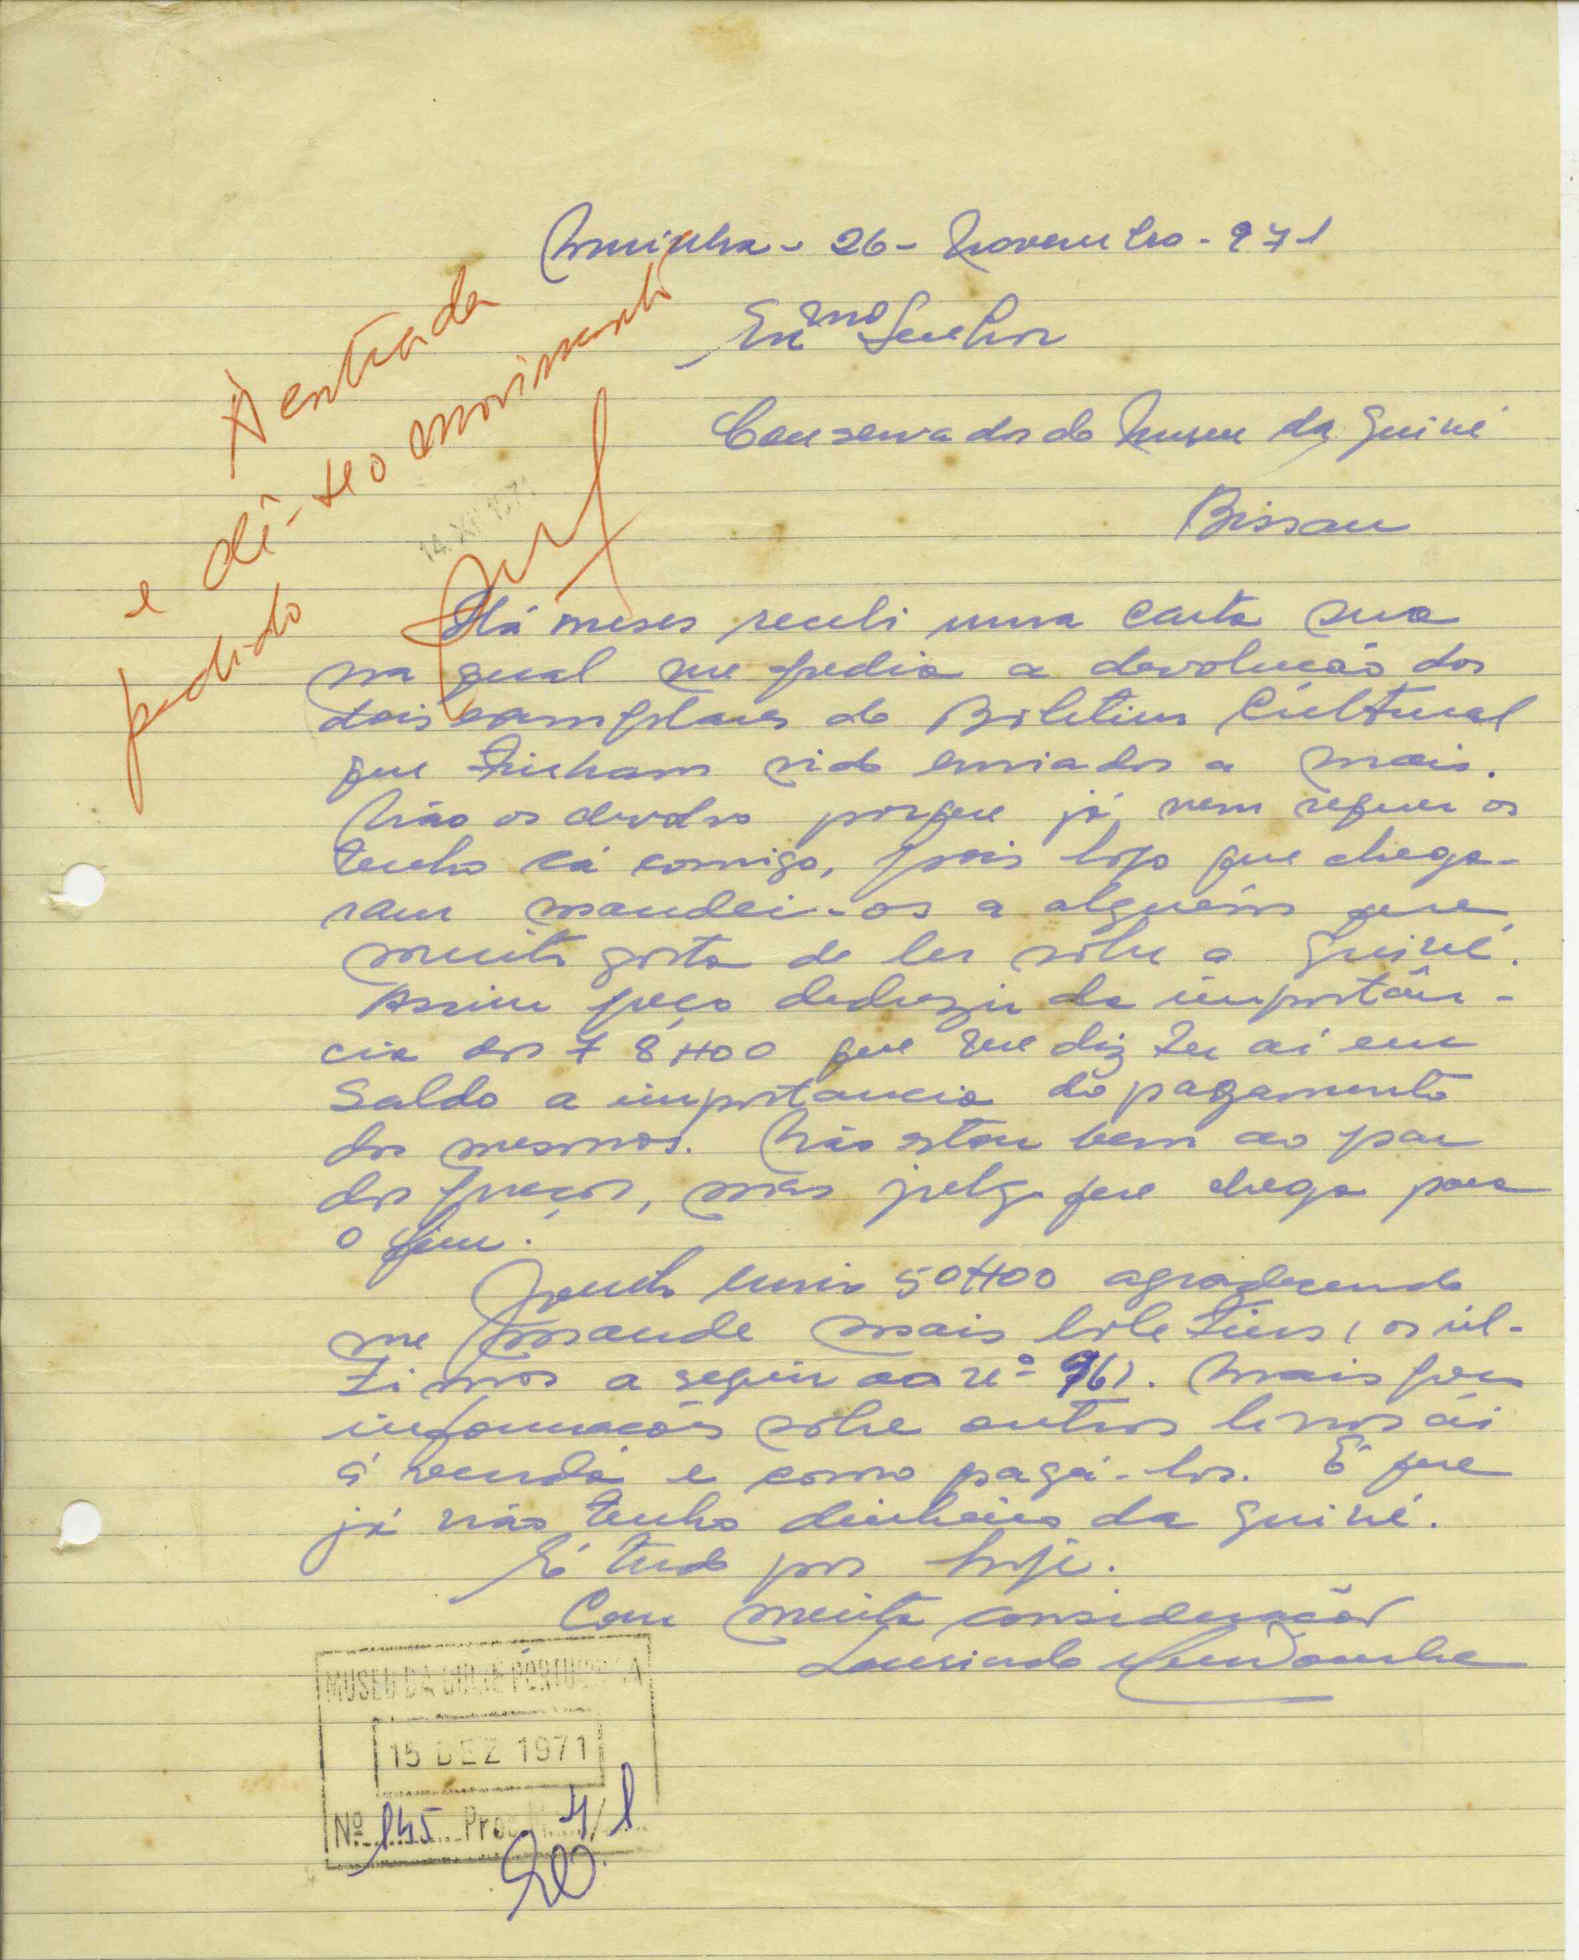 26 - Novembro - 971
Exmo Senhor
Conservador do Museu da Guiné
Bissau
À entrada
e dê-se o movimento
pedido
14. XII 1971
Há meses recebi uma carta sua
na qual me pedia a devolução dos
dois exemplares do Boletim Cultural
que tinham sido enviados a mais.
Não os devolvo porque já nem sequer os
tenho cá comigo, pois logo que chega-
ram mandei-os a alguém que
muito gosta de ler sobre a Guiné.
Assim peço deduzir da importân-
cia dos 78$00 que me diz ter aí em
Saldo a importancia do pagamento
dos mesmos. Não estou bem ao par
dos preços, mas julgo que chega para
o fim.
Junto envio 50$00 agradecendo
me mande mais boletins, os úl-
timos a seguir ao nº 96). Mais peço
informações sobre outros livros aí
á venda e como pagá-los. É que
já não tenho dinheiro da Guiné.
É tudo por hoje.
Com muita consideração
Laurindo
MUSEU DA GUINÉ PORTUGUESA
15 DEZ 1971
Nº 145 Proc. 4/1